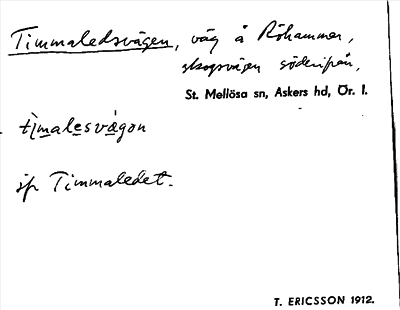 Timmaledsvägen, väg å Röhammar,
skogsvägen söderifrån,
St. Mellösa sn, Askers hd, Ör. l.
jfr Timmaledet.
T. ERICSSON 1912.